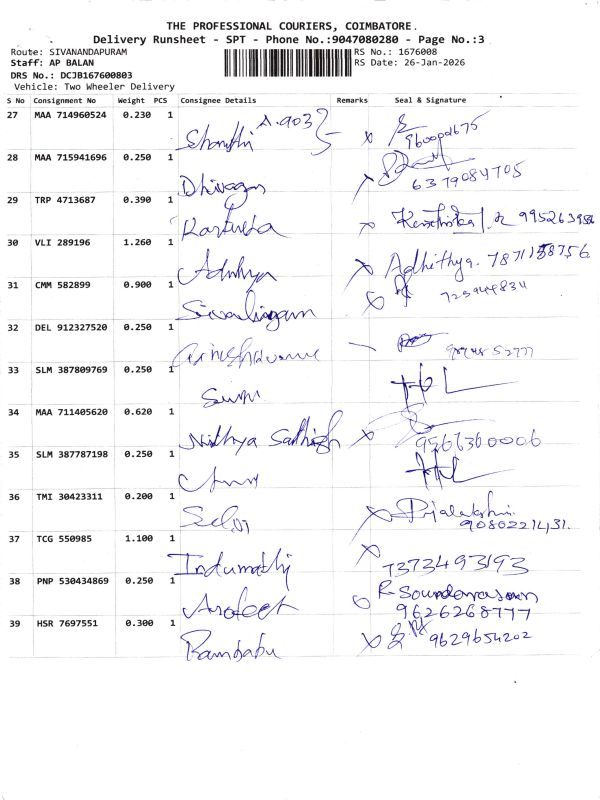 THE PROFESSIONAL COURIERS, COIMBATORE.
Delivery Runsheet - SPT - Phone No.:9047080280 - Page No.:3
Route: SIVANANDAPURAM RS No.: 1676008
Staff: AP BALAN RS Date: 26-Jan-2026
DRS No.: DCJB167600803
Vehicle: Two Wheeler Delivery
S No Consignment No Weight PCS Consignee Details Remarks Seal & Signature
27 MAA 714960524 0.230 1 Shanthi A.903
28 MAA 715941696 0.250 1 6379084705
29 TRP 4713687 0.390 1
30 VLI 289196 1.260 1 Adhithya. 7871158756
31 CMM 582899 0.900 1 Sivalingam
32 DEL 912327520 0.250 1
33 SLM 387809769 0.250 1
34 MAA 711405620 0.620 1 Nithya 9566360006
35 SLM 387787198 0.250 1
36 TMI 30423311 0.200 1 Selvi
37 TCG 550985 1.100 1 Indumathi 7373493193
38 PNP 530434869 0.250 1 9626268777
39 HSR 7697551 0.300 1 Rambabu 9629654202